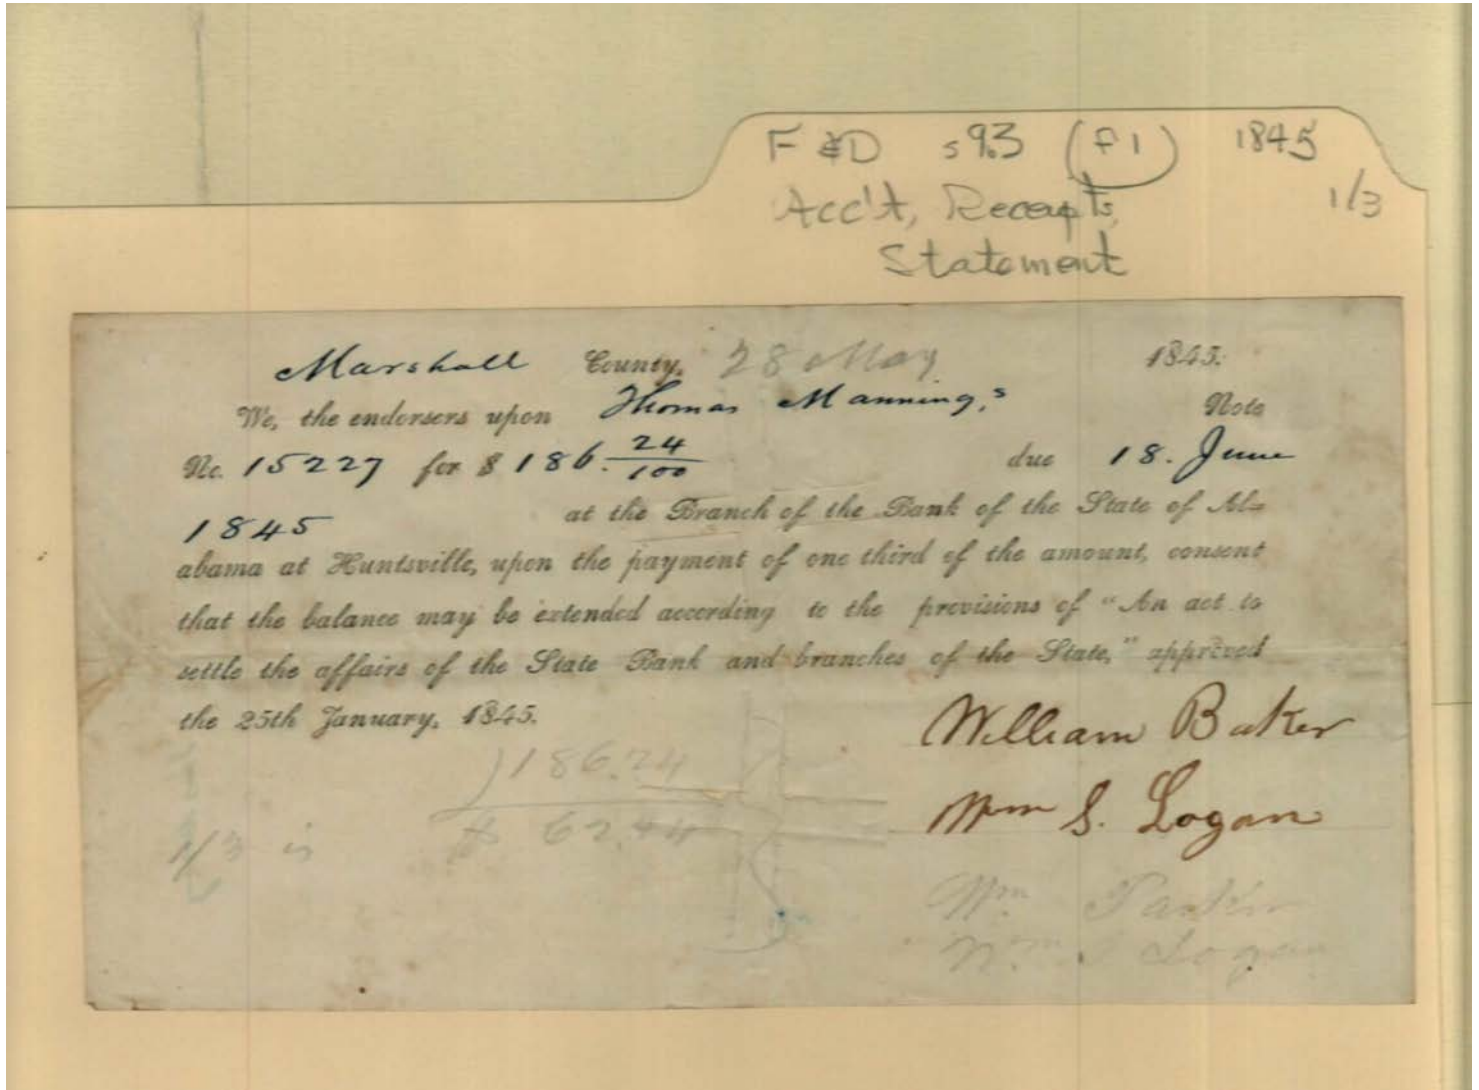 F &D s 93 (f1) 1845
1/3
Acc't, Receipts,
Statement
Marshall County, 28 May 1845.
We, the endorsers upon Thomas Manning,s Note
No. 15227 for $ 186. 24/100 due 18. June
1845 at the Branch of the Bank of the State of Al-
abama at Huntsville, upon the payment of one third of the amount, consent
that the balance may be extended according to the provisions of "An act to
settle the affairs of the State Bank and branches of the State," approved
the 25th January, 1845.
William Baker
)186.24
Wm S. Logan
1/3 is $ 62.
Wm
Wm S Logan